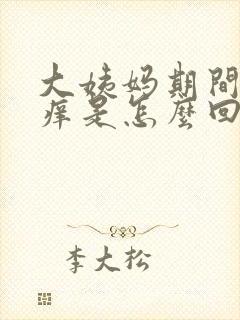 大姨妈期間
痒是怎麼回
李大松